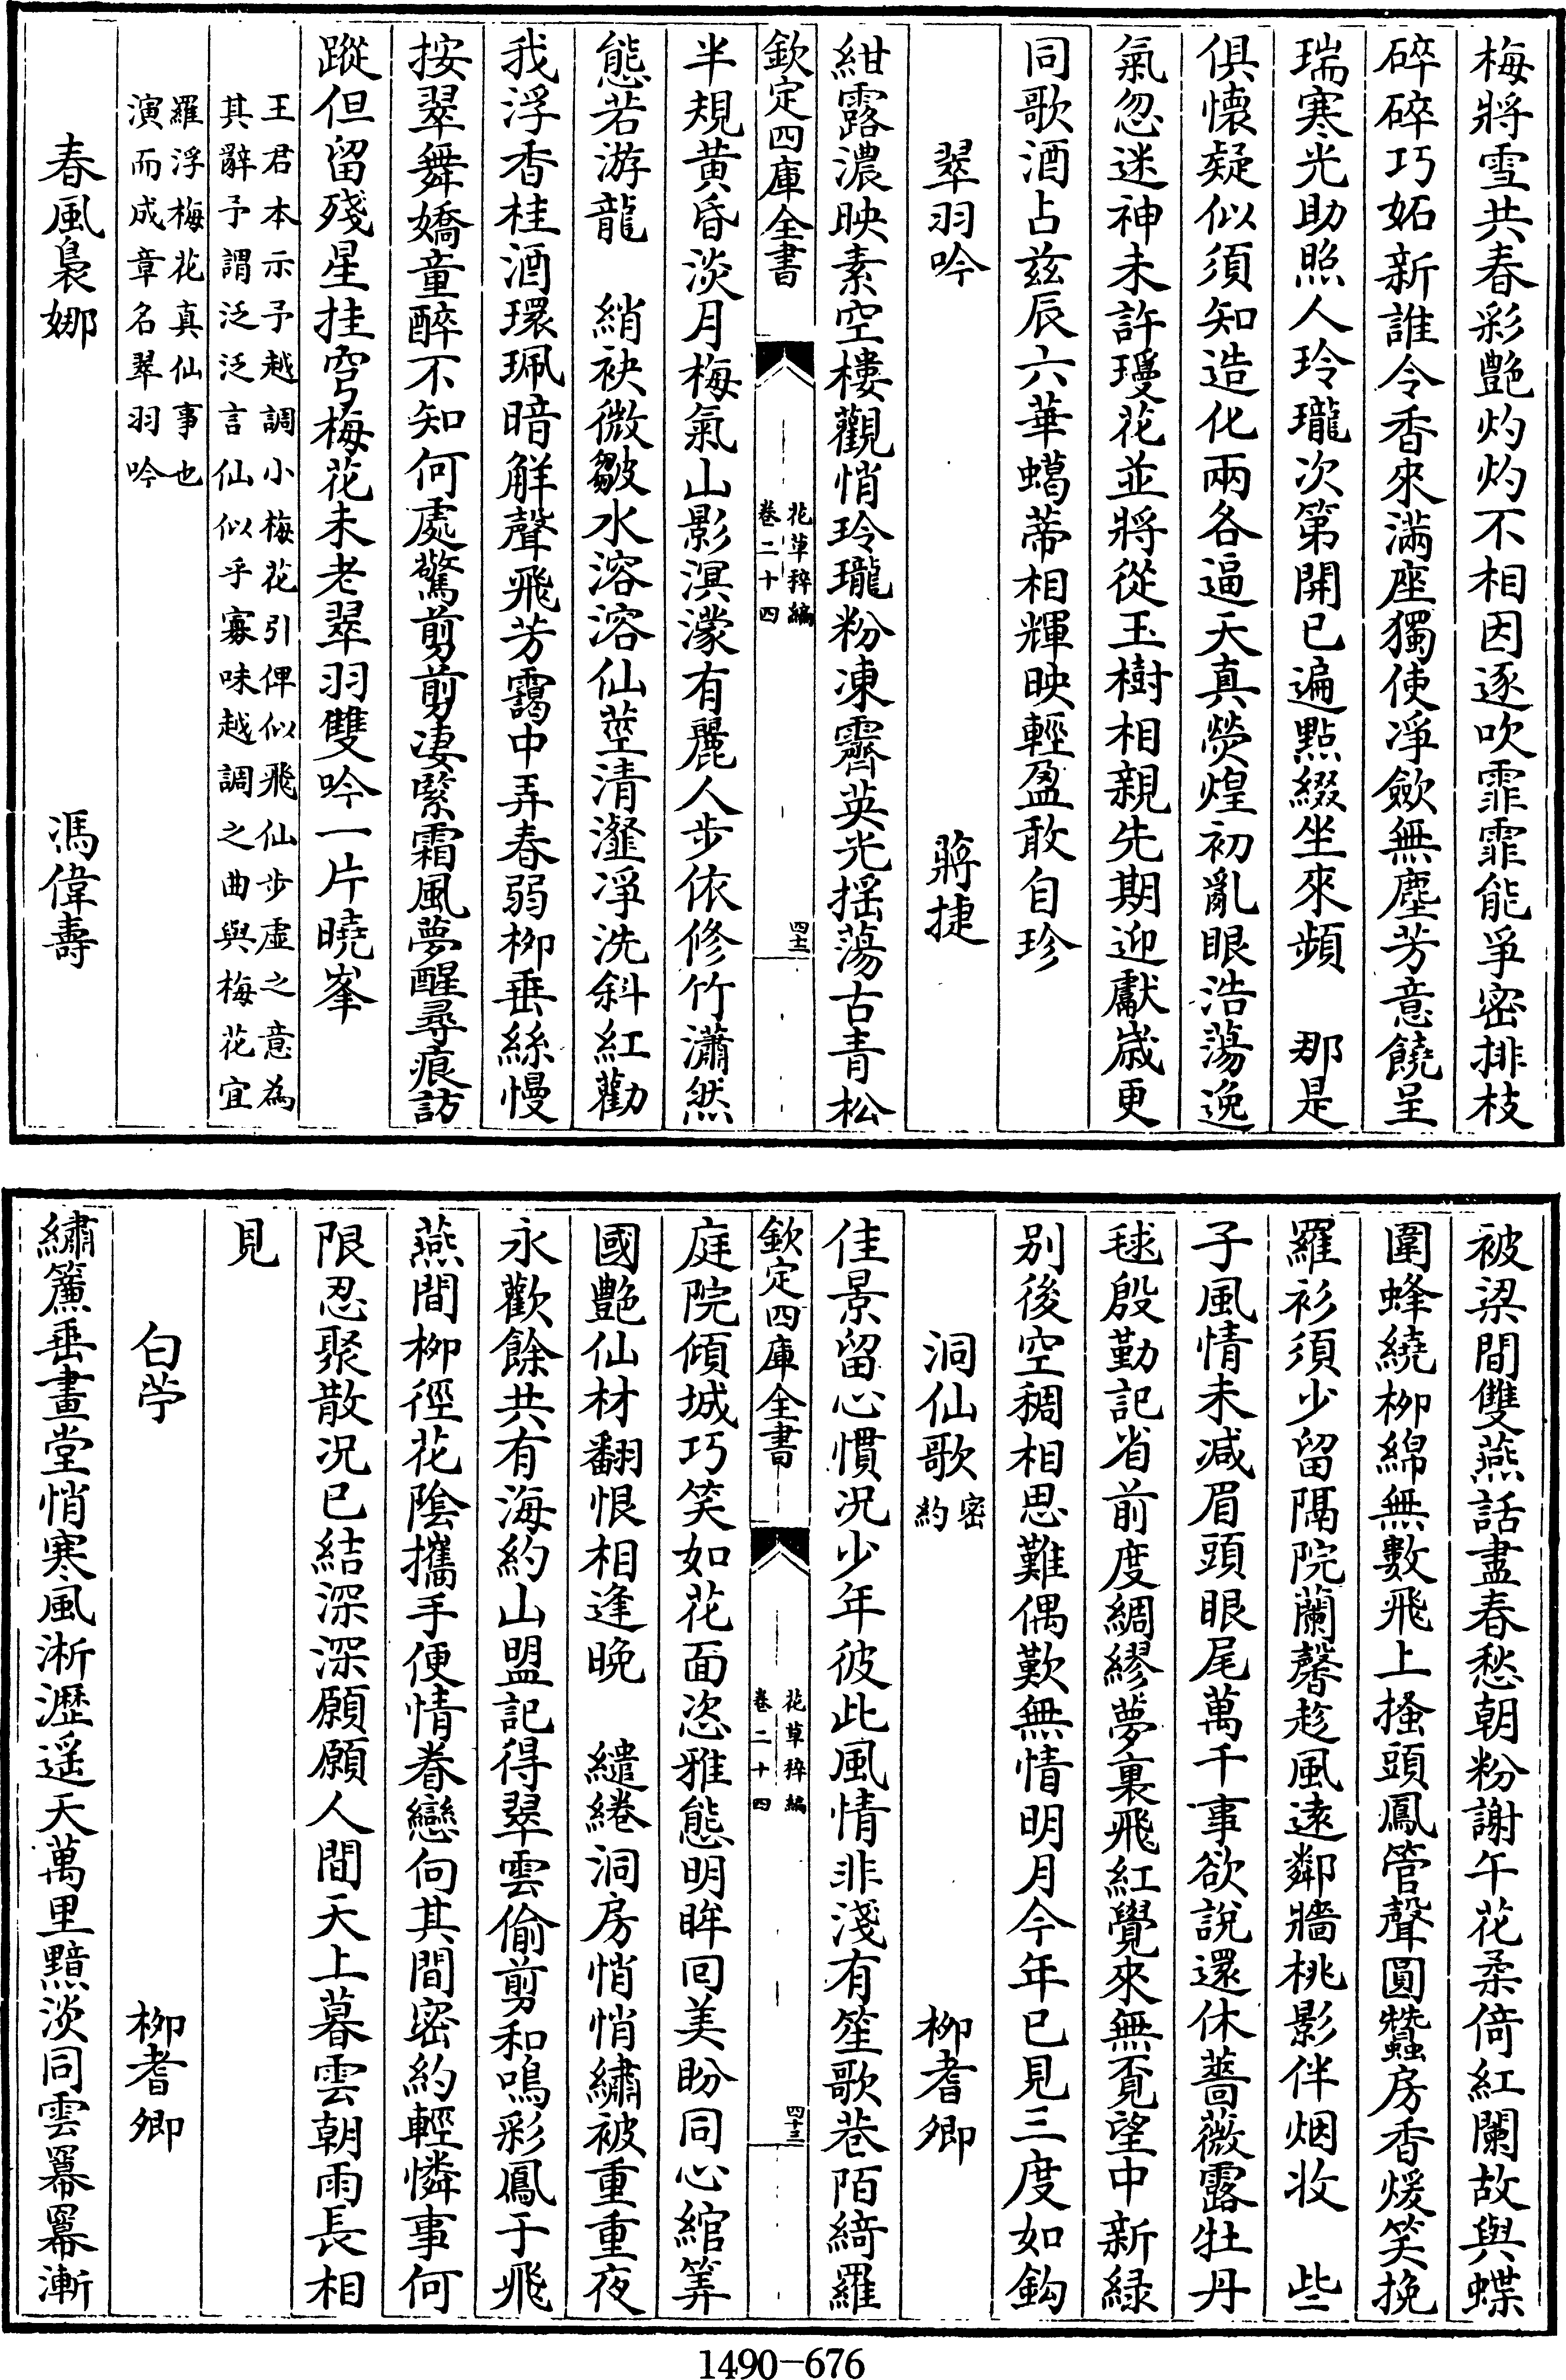 梅將雪共春彩艷灼灼不相因逐吹霏霏能爭密排枝
碎碎巧妬新誰令香來滿座獨使凈斂無塵芳意饒呈
瑞寒光助照人玲瓏次第開已遍點綴坐來頻　那是
俱懷疑似須知造化兩各逼天真熒煌初亂眼浩蕩逸
氣忽迷神未許瓊花並將從玉樹相親先期迎獻歲更
同歌酒占兹辰六華蠟蒂相輝映輕盈敢自珍
翠羽吟　蔣捷
紺露濃映素空樓觀悄玲瓏粉凍霽英光揺蕩古青松
欽定四庫全書　花草稡編卷二十四　四十二
半規黄昏淡月梅氣山影溟濛有麗人步依修竹瀟然
態若游龍　綃袂微皺水溶溶仙莖清瀣凈洗斜紅勸
我浮香桂酒環珮暗解聲飛芳靄中弄春弱柳垂絲慢
按翠舞嬌童醉不知何處驚剪剪凄緊霜風夢醒尋痕訪
蹤但留殘星挂穹梅花未老翠羽雙吟一片曉峯
王君本示予越調小梅花引俾似飛仙步虛之意為
其辭予謂泛泛言仙似乎寡味越調之曲與梅花宜
羅浮梅花真仙事也
演而成章名翠羽吟
春風裊娜　馮偉壽
被梁間雙燕話盡春愁朝粉謝午花柔倚紅闌故與蝶
圍蜂繞柳綿無數飛上搔頭鳳管聲圓蠶房香煖笑挽
羅衫須少留隔院蘭馨趁風遠鄰牆桃影伴烟收　些
子風情未減眉頭眼尾萬千事欲說還休薔薇露牡丹
毬殷勤記省前度綢繆夢裏飛紅覺來無覓望中新綠
別後空稠相思難偶歎無情明月今年已見三度如鈎
洞仙歌密約　柳耆卿
佳景留心慣况少年彼此風情非淺有笙歌巷陌綺羅
欽定四庫全書　花草稡編卷二十四　四十三
庭院傾城巧笑如花面恣雅態明眸回美盼同心綰筭
國艷仙材翻恨相逢晚　繾綣洞房悄悄繡被重重夜
永歡餘共有海約山盟記得翠雲偷剪和鳴彩鳳于飛
燕間柳徑花陰攜手便情眷戀向其間密約輕憐事何
限忍聚散况已結深深願願人間天上暮雲朝雨長相
見
白苧　柳耆卿
繡簾垂畫堂悄寒風淅瀝遥天萬里黯淡同雲羃羃漸
1490-676